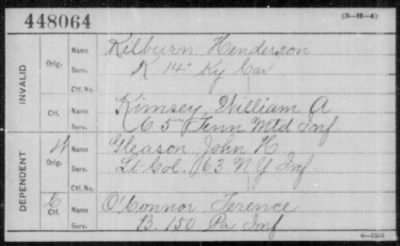 448064
(3-H-4)
INVALID
Orig.
Name
Kilburn Henderson
Serv.
K 14" Ky Cav
Ctf. No.
Ctf.
Name
Kimsey, William A
Serv.
C 5" Tenn Mtd Inf.
DEPENDENT
W
Orig.
Name
Gleason, John H
Serv.
Lt Col. 63 N Y Inf.
Ctf. No.
C
Ctf.
Name
O'Connor Terence
Serv.
B. 150 Pa Inf